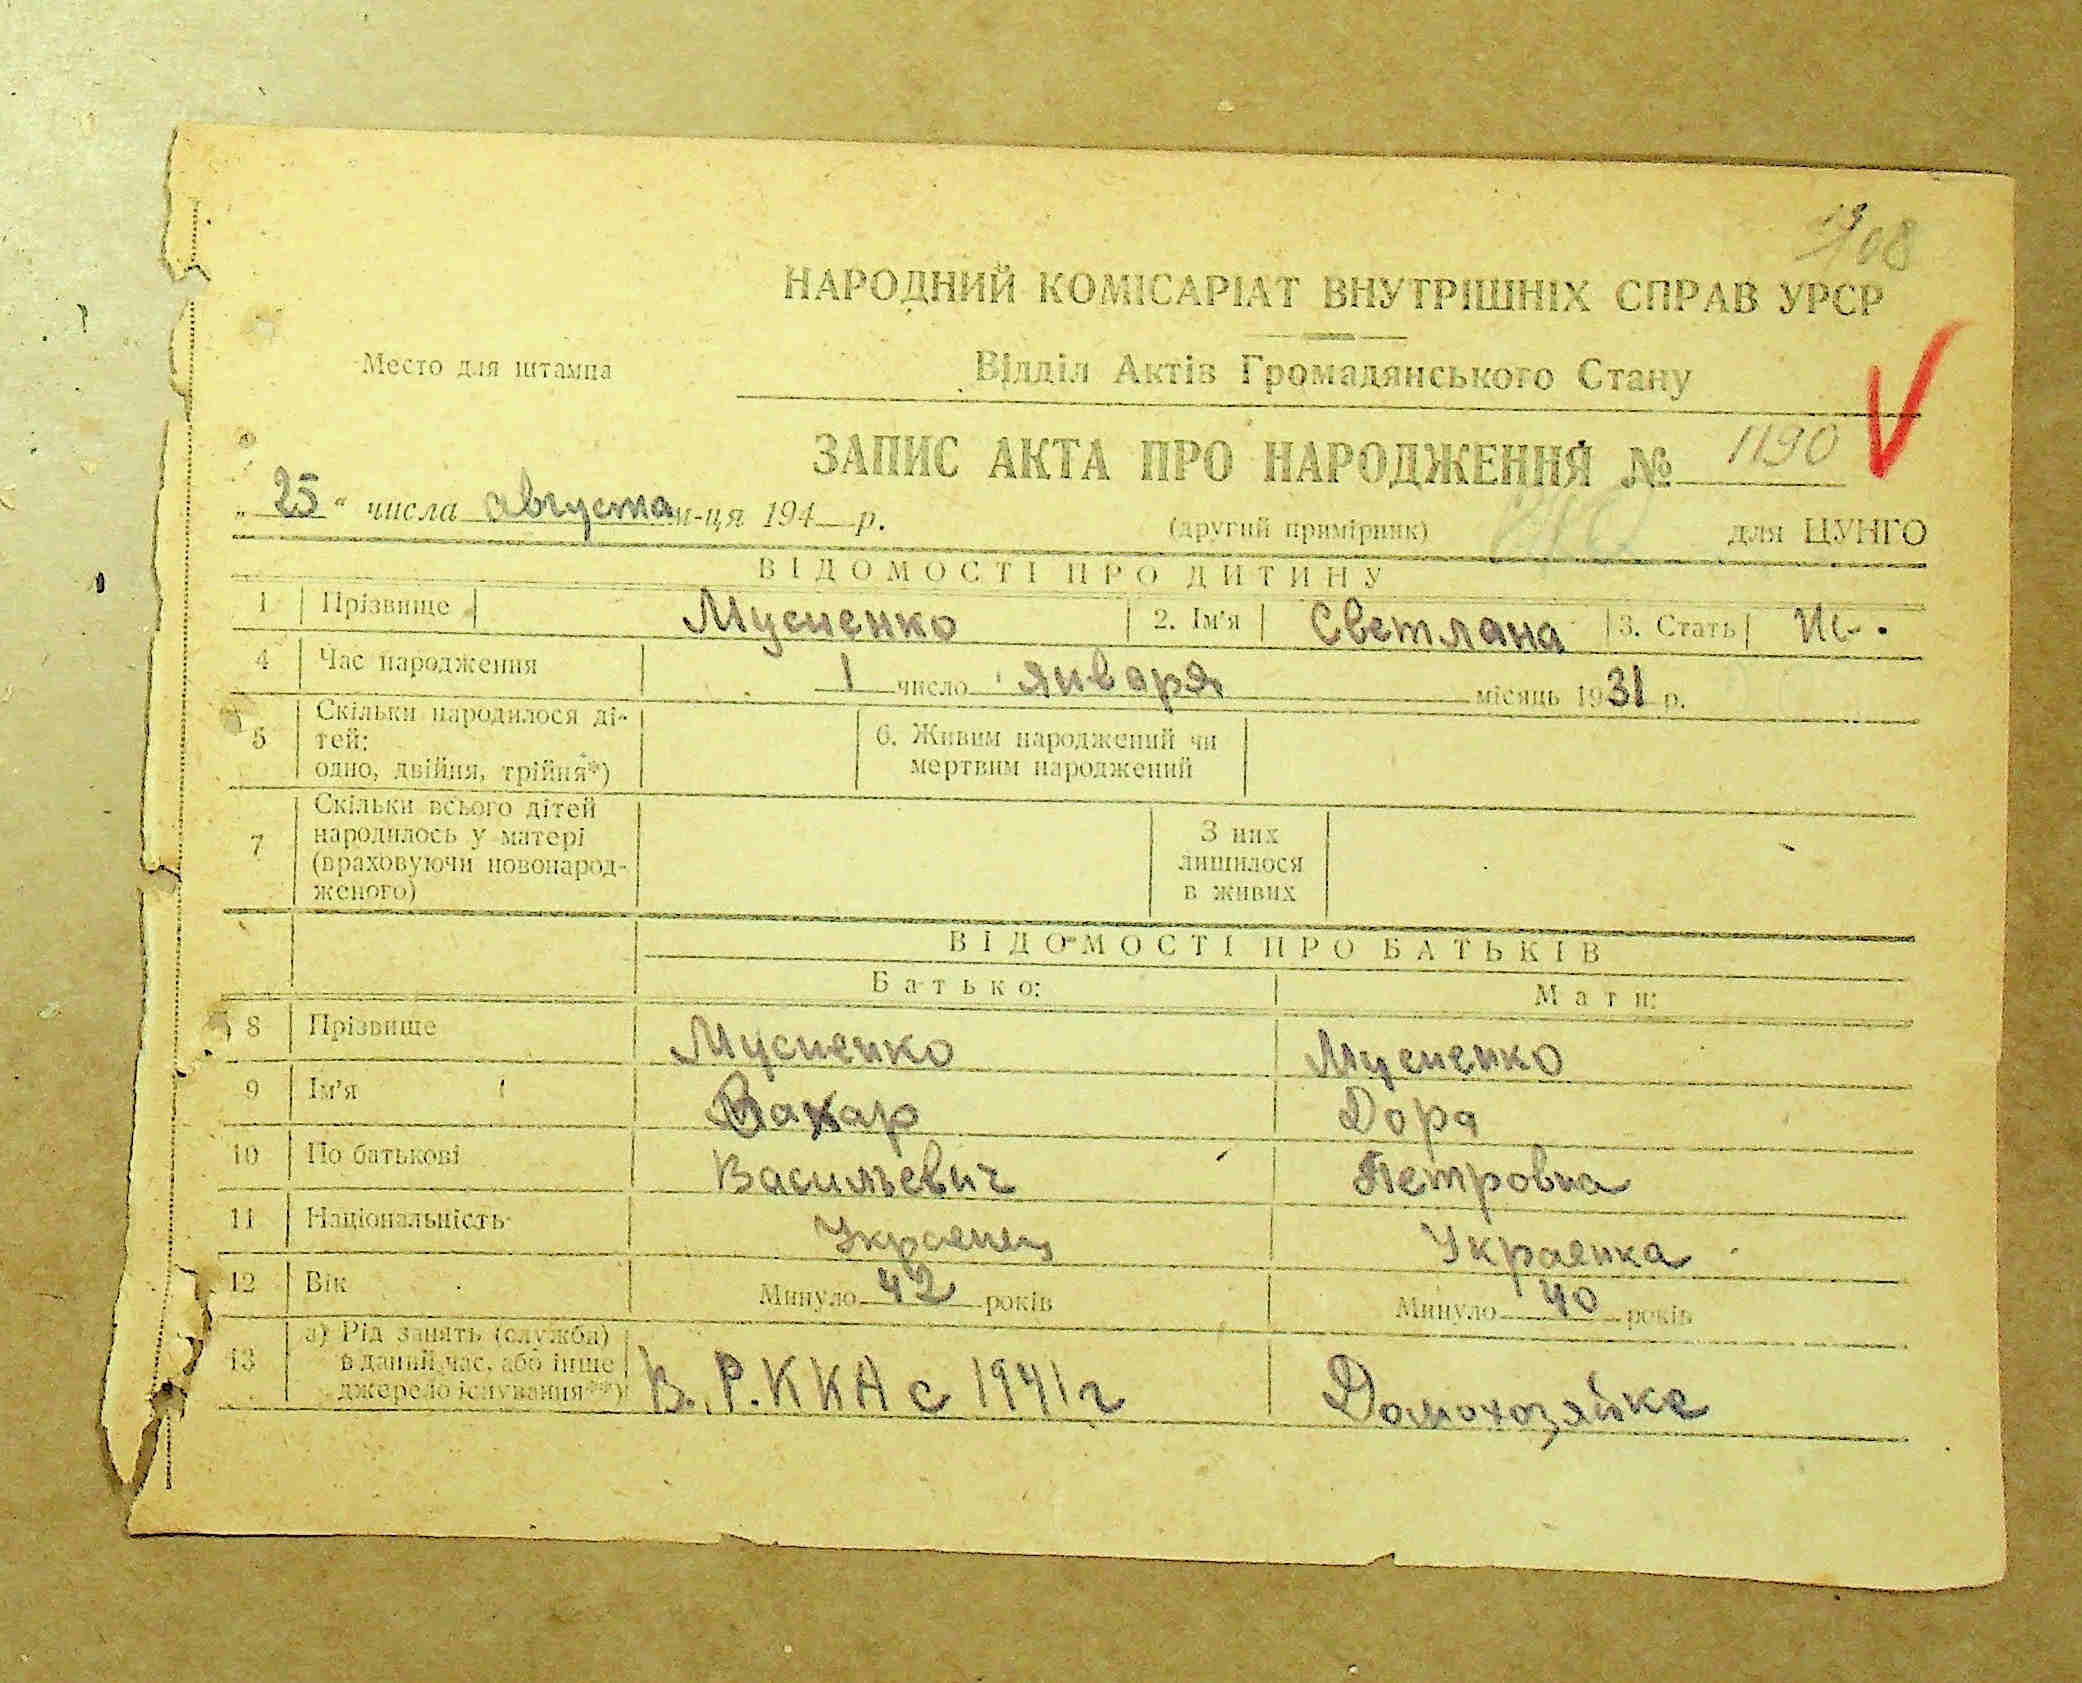 НАРОДНИЙ КОМІСАРІАТ ВНУТРІШНІХ СПРАВ УРСР
Место для штампа
Відділ Актів Громадянського Стану
ЗАПИС АКТА ПРО НАРОДЖЕННЯ № 1190
„25“ числа августа м-ця 194 р.
(другий примірник) для ЦУНГО
ВІДОМОСТІ ПРО ДИТИНУ
1 Прізвище Мусиенко 2. Ім'я Светлана 3. Стать
4 Час народження 1 число января місяць 1931 р.
5 Скільки народилося ді-
тей:
одно, двійня, трійня*)
6. Живим народжений чи
мертвим народжений
7 Скільки всього дітей
народилось у матері
(враховуючи новонарод-
женого)
З них
лишилося
в живих
ВІДОМОСТІ ПРО БАТЬКІВ
Батько: Мати:
8 Прізвище Мусиенко Мусиенко
9 Ім'я Захар Дора
10 По батькові Васильевич Петровна
11 Національність Украенец Украенка
12 Вік Минуло 42 років Минуло 40 років
13 а) Рід занять (служби)
в даний час, або інше
джерело існування**)
В. Р.ККА с 1941 г Домохозяйка